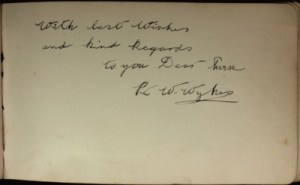 With best Wishes
and kind Regards
to you Dear
W. Wykes